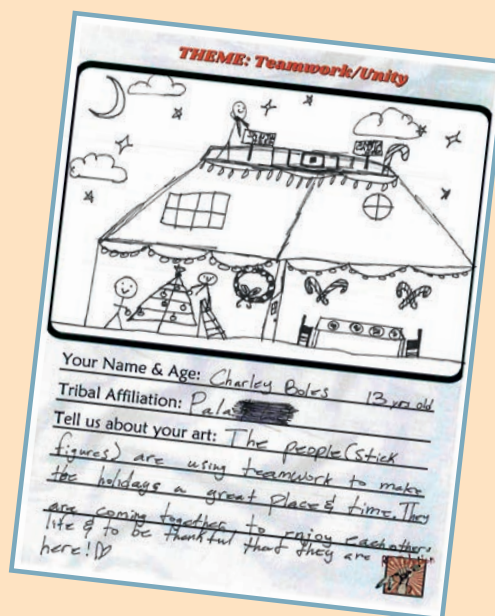 THEME: Teamwork/Unity
Your Name & Age: Charley Boles 13 yrs old
Tribal Affiliation: Pala
Tell us about your art: The people (stick
figures) are using teamwork to make
the holidays a great place & time. They
are coming together to enjoy eachothers
life & to be thankful that they are
here!